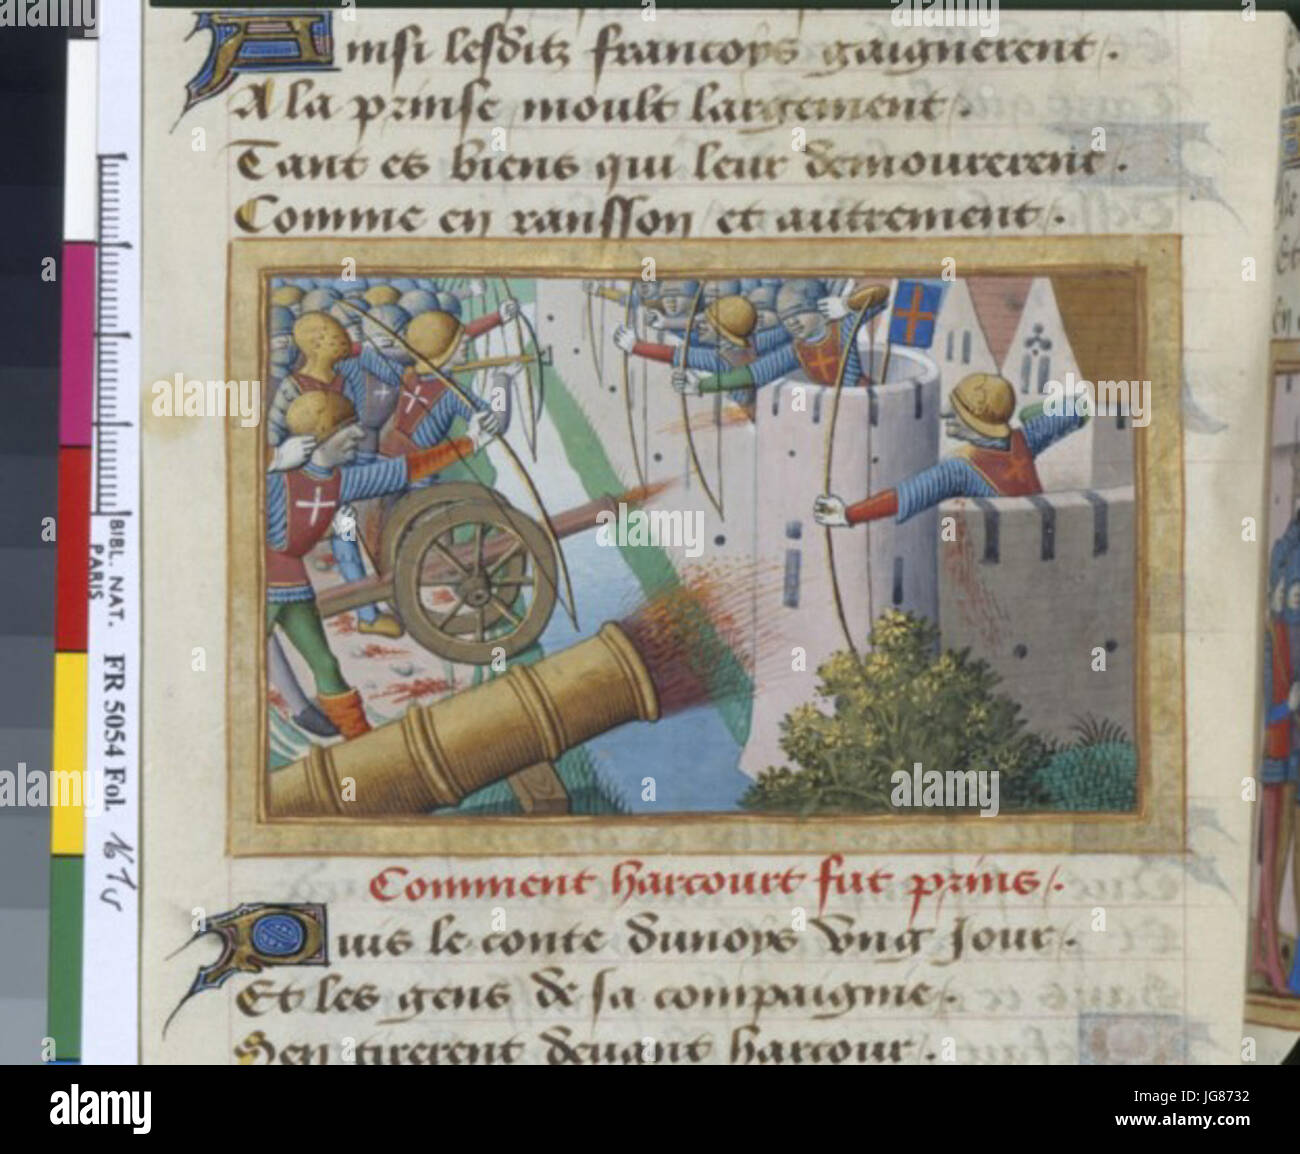 Ainsi lesditz francoys gaignerent /.
A la prinse moult largement /.
Tant es biens qui leur demourerent .
Comme en ransson / et autrement /.
Comment harcourt fut prins /.
Puis le conte dunoys vng jour .
Et les gens de sa compaignie .
Sen tirerent deuant harcour .
BIBL. NAT.
PARIS
FR 5054 Fol.
alamy stock photo
JG8732
www.alamy.com